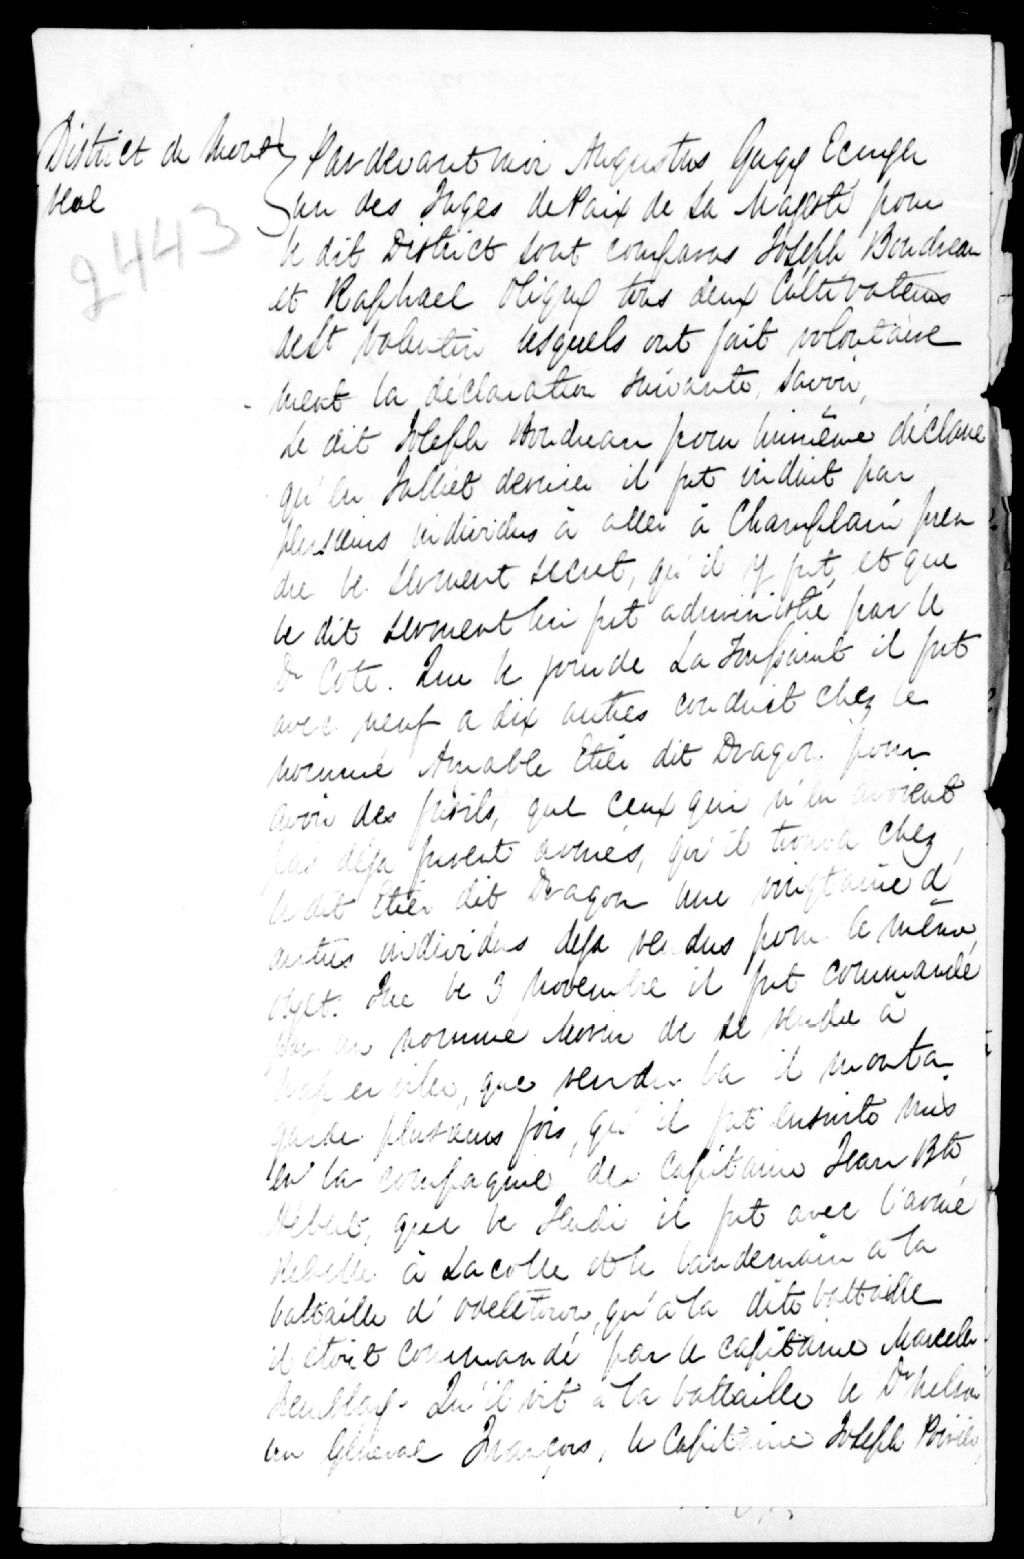 District de Mont
real
2443
Pardevant moi Augustus Gugy Ecuyer
un des Juges de Paix de Sa Majesté pour
le dit District sont comparus Joseph Boudreau
et Raphael Oligny tous deux Cultivateurs
de St Valentin lesquels ont fait volontaire
ment la déclaration suivante, savoir,
Le dit Joseph Boudreau pour luimême déclare
qu'en Juillet dernier il fut induit par
plusieurs individus à aller à Champlain pren
dre le serment secret, qu'il y fut, et que
le dit serment lui fut administré par le
Dr Cote. Que le jour de La Toussaint il fut
avec neuf a dix autres conduit chez le
nommé Amable Etier dit Dragon pour
avoir des fusils, que ceux qui n'en avoient
pas déja furent armés, qu'il trouva chez
le dit Etier dit Dragon une vingtaine d'
autres individus déja rendus pour le même
objet. Que le 3 Novembre il fut commandé
par un nommé Morin de se rendre à
Napierville, que rendu la il monta
garde plusieurs fois, qu'il fut ensuite mis
en la compagnie de Capitaine Jean Bte
Hebert, que le Jeudi il fut avec l'armé
rebelle à Lacolle et le landemain a la
battaille d'Odelltown, qu'à la dite battaille
il étoit commandé par le capitaine Marcelle
Qu'il vit à la battaille le Dr Nelson
un Géneral François, le Capitaine Joseph Poirier,